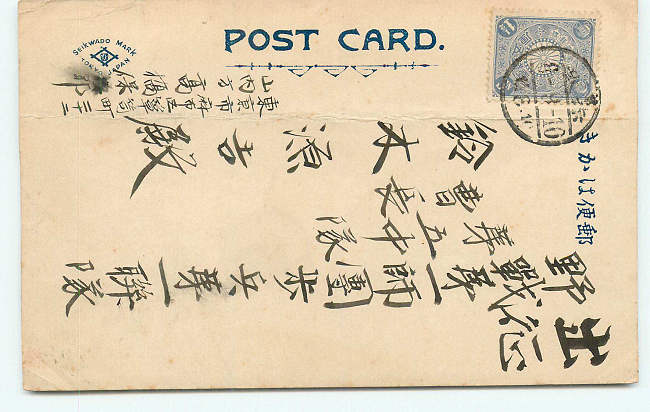 SEIKWADO MARK
TOKYO JAPAN
POST CARD.
郵便はかき
出征
野戰第一師團歩兵第一聯隊
第五中隊
曹長
鈴木源吉殿
東京市麻布區箪笥町二十二
山内方高橋保